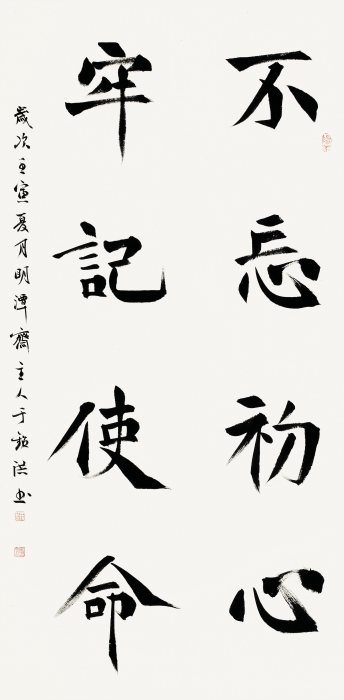 不忘初心
牢記使命
歲次壬寅夏月明潭齋主人于洪書